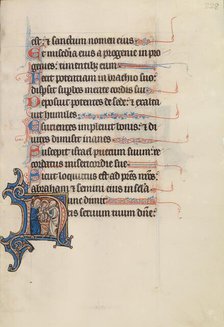 est: & sanctum nomen eius
Et misericordia eius a progenie in pro
genies: timentibus eum
Fecit potentiam in brachio suo:
dispersit superbos mente cordis sui
Deposuit potentes de sede: & exalta
uit humiles
Esurientes impleuit bonis: & di
uites dimisit inanes
Suscepit israel puerum suum: re
cordatus misericordie sue
Sicut locutus est ad patres nostros:
abraham & semini eius in secula
Nunc dimit
tis seruum tuum domine: